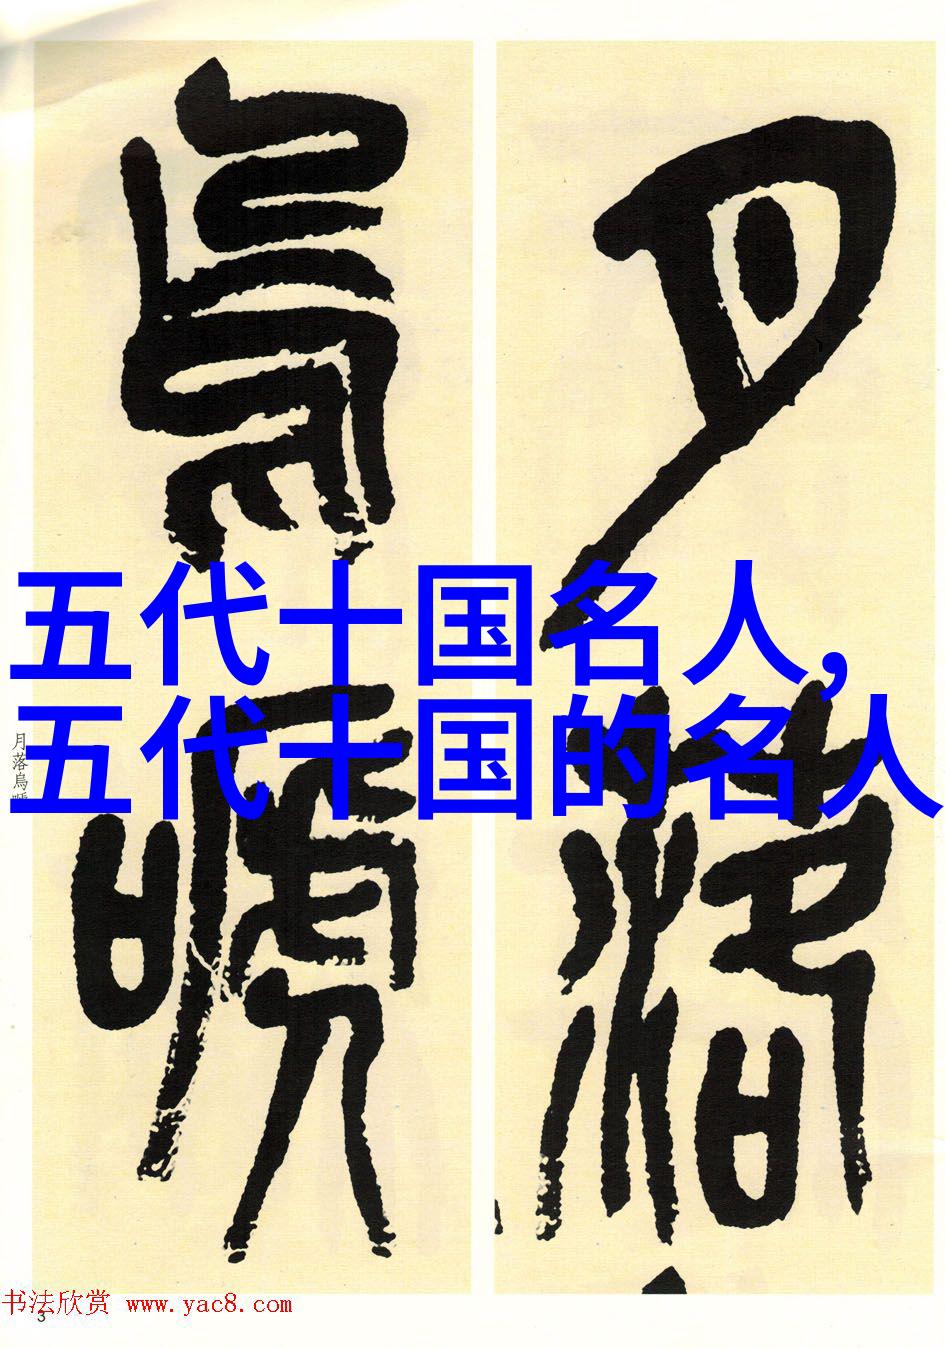 月落
烏嗁
五代十国名人,
五代十国的名人
月落烏
书法欣赏 www.yac8.com
3